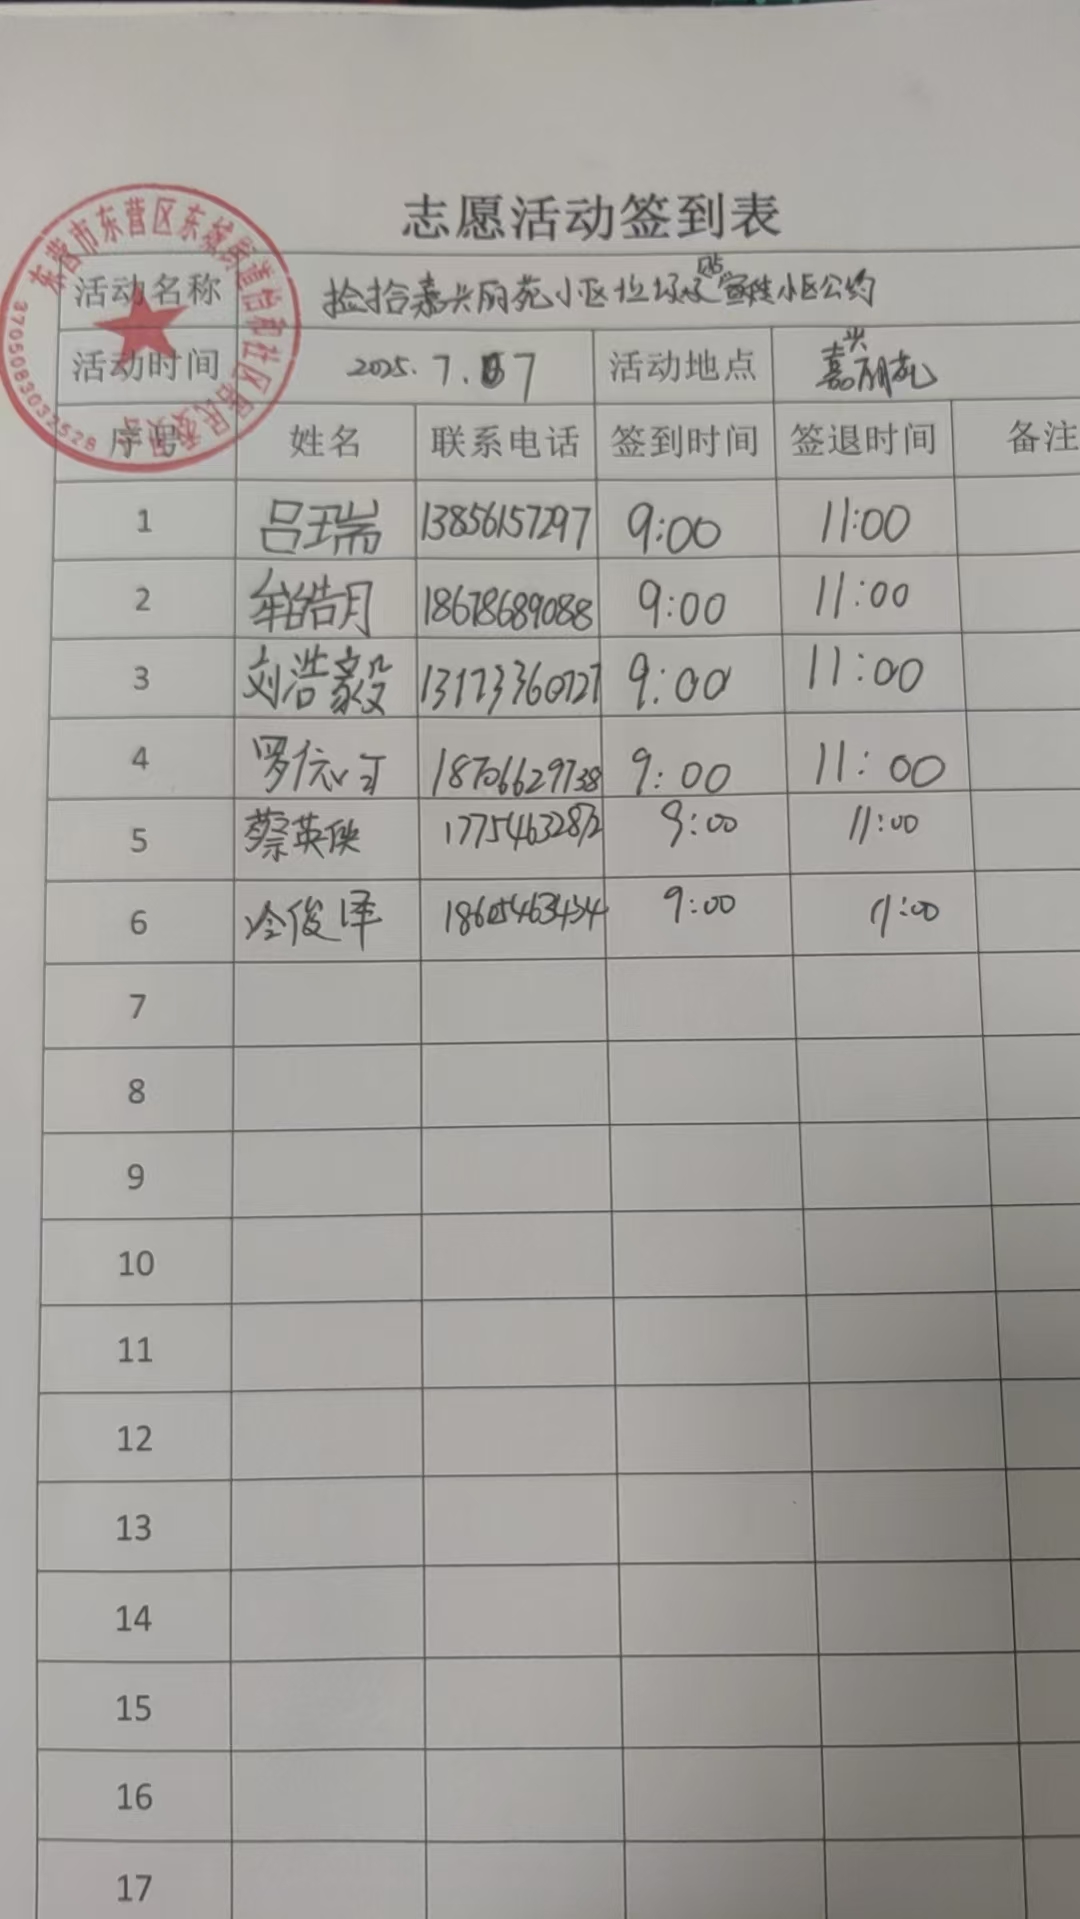 志愿活动签到表
东营市东营区东城街道怡和社区居民委员会
3705083032528
活动名称 捡拾嘉兴丽苑小区垃圾及贴宣传小区公约
活动时间 2025.7.7 活动地点 嘉兴丽苑
序号 姓名 联系电话 签到时间 签退时间 备注
1 吕瑞 13856157297 9:00 11:00
2 牟皓月 18678689088 9:00 11:00
3 刘浩毅 13173360727 9:00 11:00
4 罗信 18706629738 9:00 11:00
5 蔡英侠 17754632872 9:00 11:00
6 冷俊泽 18605463434 9:00 11:00
7
8
9
10
11
12
13
14
15
16
17